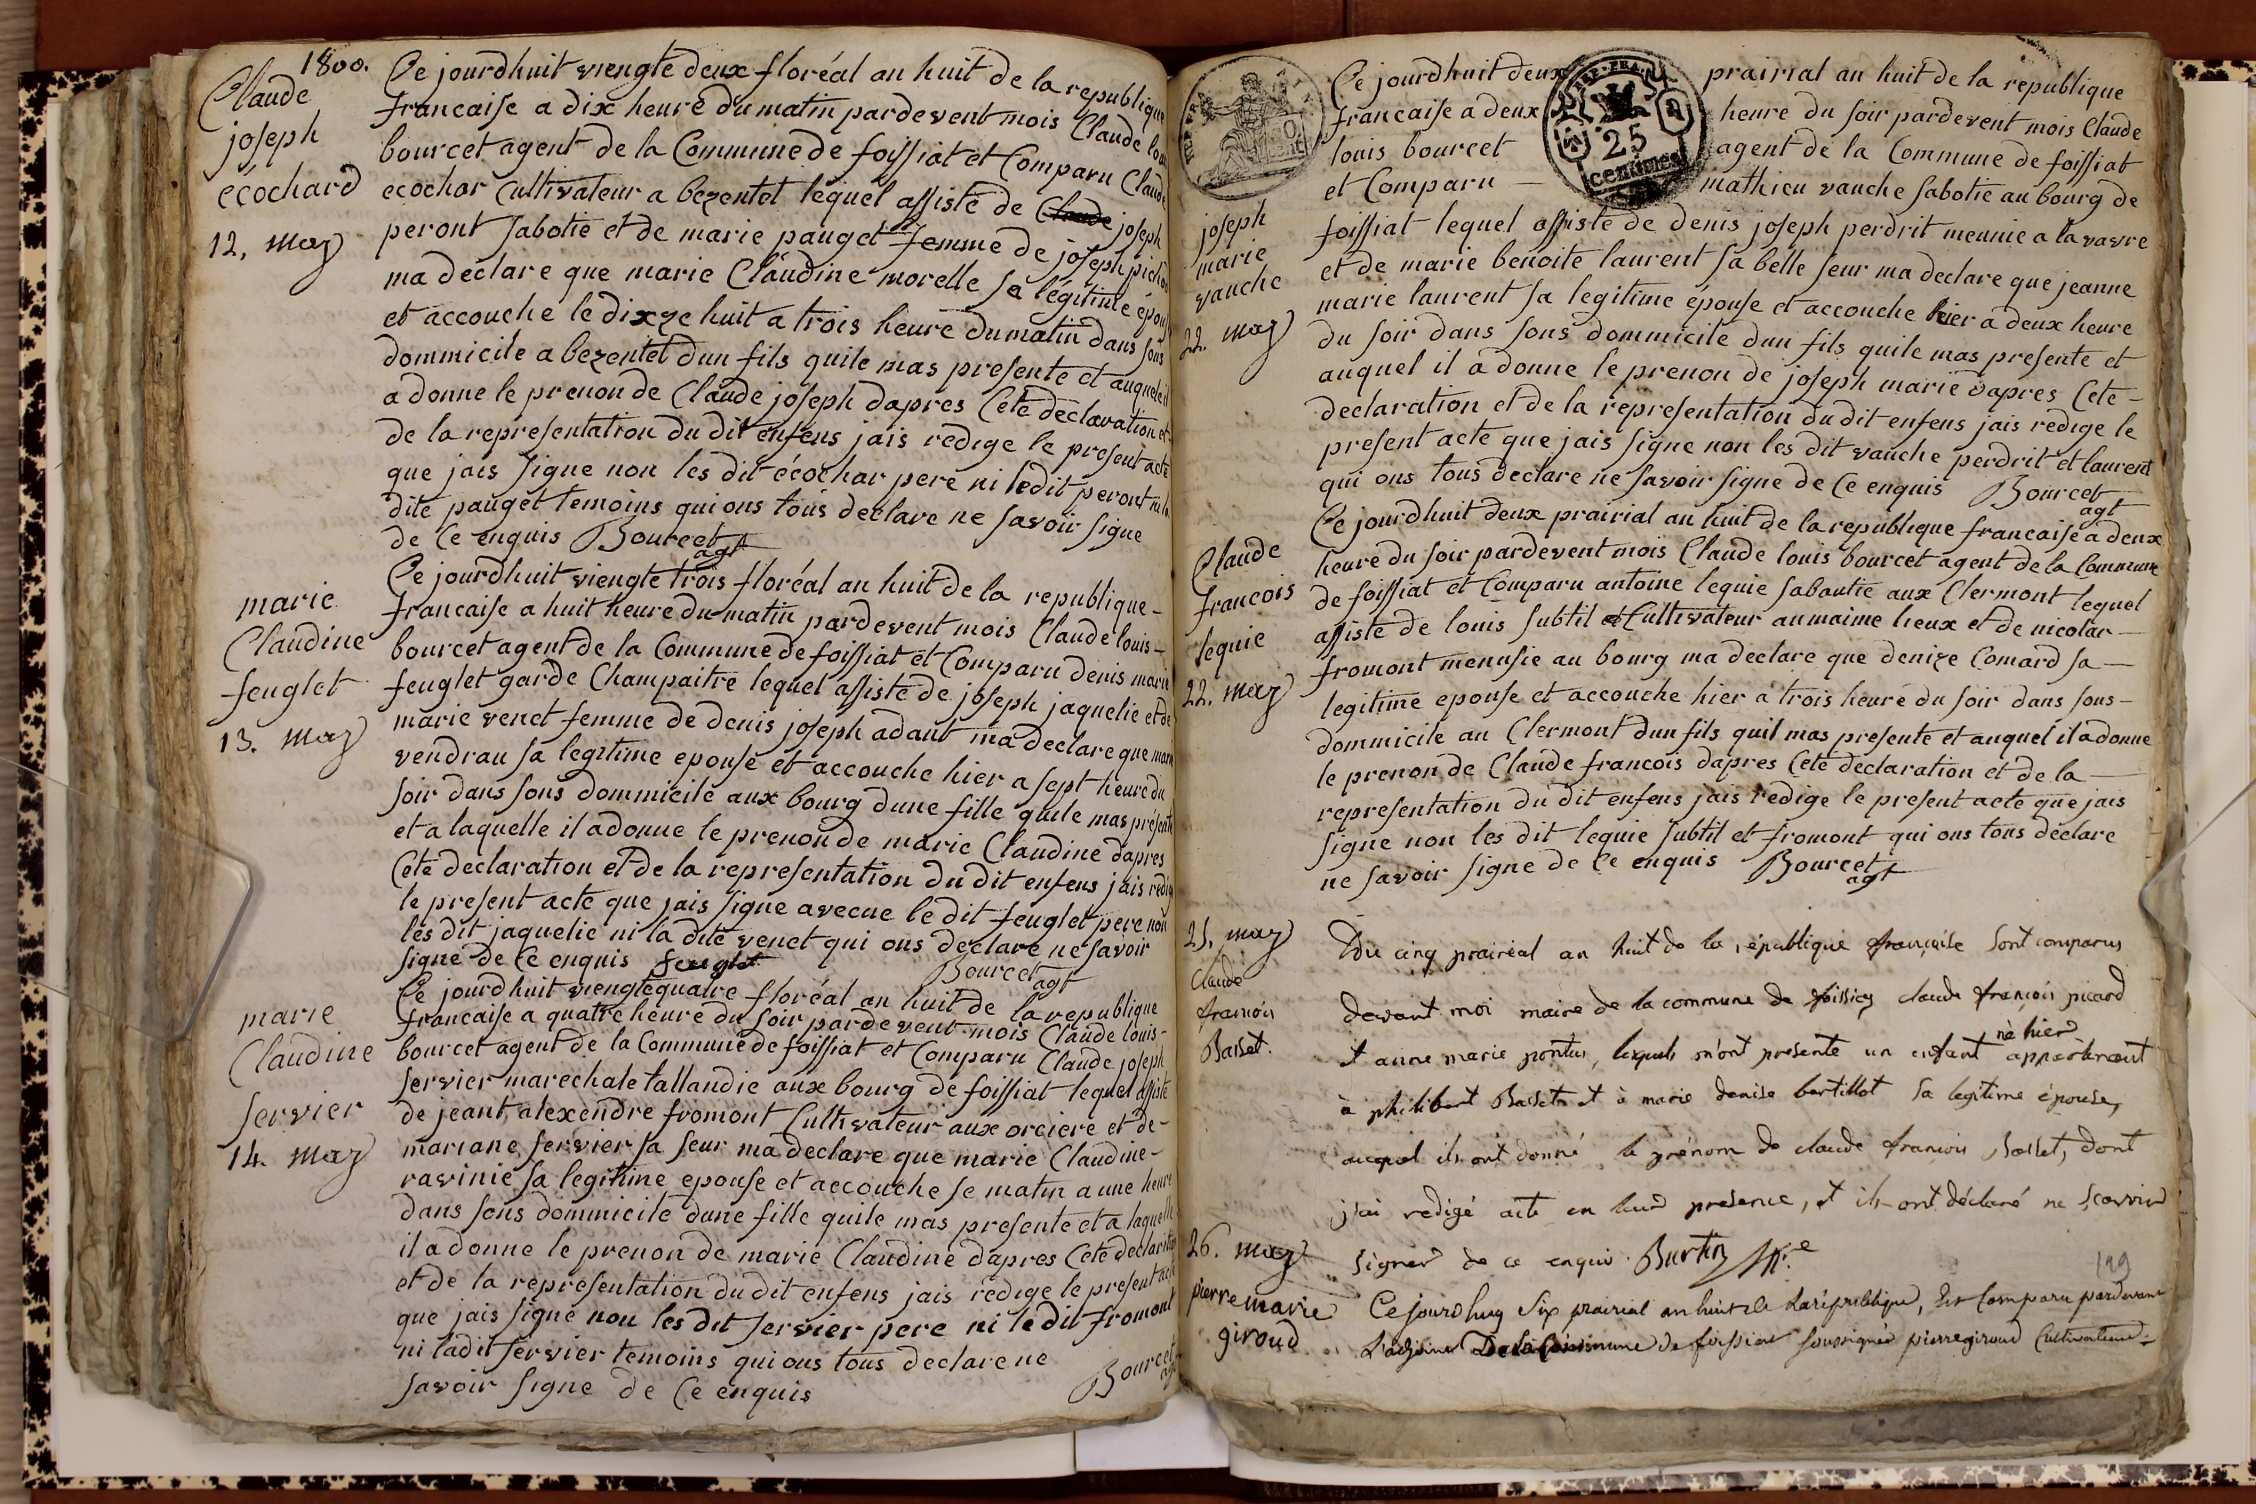 1800.
Claude
joseph
ecochard
12. may
Ce jourdhuit viengte deux floréal an huit de la republique
francaise a dix heure du matin pardevent mois Claude loui
bourcet agent de la Commune de foissiat et Comparu Claude
ecochar Cultivateur a bezentet lequel assiste de Claude joseph
peront sabotie et de marie pauget femme de joseph pichon
ma declare que marie Claudine morelle sa légitime épouse
et accouche le dixze huit a trois heure du matin dans sons
dommicile a bezentet dun fils quile mas presente et auquele il
a donne le prenon de Claude joseph dapres Cete declaration et
de la representation du dit enfens jais redige le present acte
que jais signe non les dit écochar pere ni ledit peront ni la
dite pauget temoins qui ons tous declare ne savoir signe
de Ce enquis Bourcet
agt
marie
Claudine
feuglet
13. may
Ce jourdhuit viengte trois floréal an huit de la republique
francaise a huit heure du matin pardevent mois Claude louis
bourcet agent de la Commune de foissiat et Comparu denis marie
feuglet garde Champaitre lequel assiste de joseph jaquelie et de
marie venet femme de denis joseph adant ma declare que marie
vendrau sa legitime epouse et accouche hier a sept heure du
soir dans sons dommicile aux bourg dune fille quile mas presente
et a laquelle il a donne le prenon de marie Claudine dapres
Cete declaration et de la representation du dit enfens jais redige
le present acte que jais signe avecue le dit feuglet pere non
les dit jaquelie ni la dite venet qui ons declare ne savoir
signe de Ce enquis feuglet Bourcet
agt
marie
Claudine
servier
14. may
Ce jourdhuit viengtequatre floréal an huit de la republique
francaise a quatre heure du soir pardevent mois Claude louis
bourcet agent de la Commune de foissiat et Comparu Claude joseph
servier marechale tallandie aux bourg de foissiat lequel assiste
de jeant alexendre fromont Cultivateur aux orciere et de
mariane servier sa seur ma declare que marie Claudine
ravinie sa legitime epouse et accouche se matin a une heure
dans sons dommicile dune fille quile mas presente et a laquelle
il a donne le prenon de marie Claudine dapres Cete declaration
et de la representation du dit enfens jais redige le present acte
que jais signe non les dit servier pere ni le dit fromont
ni ladit servier temoins qui ons tous declare ne
savoir signe de Ce enquis Bourcet
agt
REP. FRA.
25
centimes
joseph
marie
vauche
22. may
Ce jourdhuit deux prairial an huit de la republique
francaise a deux heure du soir pardevent mois Claude
louis bourcet agent de la Commune de foissiat
et Comparu mathieu vauche sabotie au bourg de
foissiat lequel assiste de denis joseph perdrit meunie a la vavre
et de marie benoite laurent sa belle seur ma declare que jeanne
marie laurent sa legitime épouse et accouche hier a deux heure
du soir dans sons dommicile dun fils quile mas presente et
auquel il a donne le prenon de joseph marie dapres Cete
declaration et de la representation du dit enfens jais redige le
present acte que jais signe non les dit vauche perdrit et laurent
qui ons tous declare ne savoir signe de Ce enquis Bourcet
agt
Claude
francois
lequie
22. may
Ce jourdhuit deux prairial an huit de la republique francaise a deux
heure du soir pardevent mois Claude louis bourcet agent de la Commune
de foissiat et Comparu antoine lequie saboutie aux Clermont lequel
assiste de louis subtil Cultivateur au maime lieux et de nicolar
fromont menusie au bourg ma declare que denize Comard sa
legitime epouse et accouche hier a trois heure du soir dans sons
dommicile au Clermont dun fils quil mas presente et auquel il a donne
le prenon de Claude francois dapres Cete declaration et de la
representation du dit enfens jais redige le present acte que jais
signe non les dit lequie subtil et fromont qui ons tous declare
ne savoir signe de Ce enquis Bourcet
agt
25. may
Claude
francois
Basset.
Du cinq prairéal an huit de la république française sont comparus
devant moi maire de la commune de foissiat claude françois picard
né hier
et anne marie pontus, lesquels m'ont presenté un enfant appartenant
à philibert Basset et à marie denise bertillot sa legitime épouse,
auquel ils ont donné le prénom de claude francois Basset, dont
j'ai redigé acte en leur presence, et ils ont déclaré ne scavoir
signer de ce enquis. Burtin M.re
199
26. may
pierre marie
giroud
Ce jourdhuy Six prairial an huit de la république, Est Comparu pardevant
L'adjoint De la Commune de foissiat soussigné pierre giroud Cultivateur